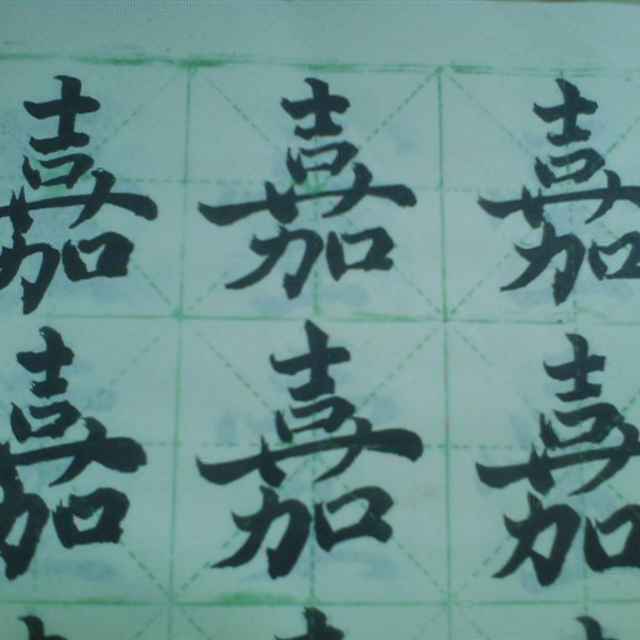 嘉嘉嘉
嘉嘉嘉